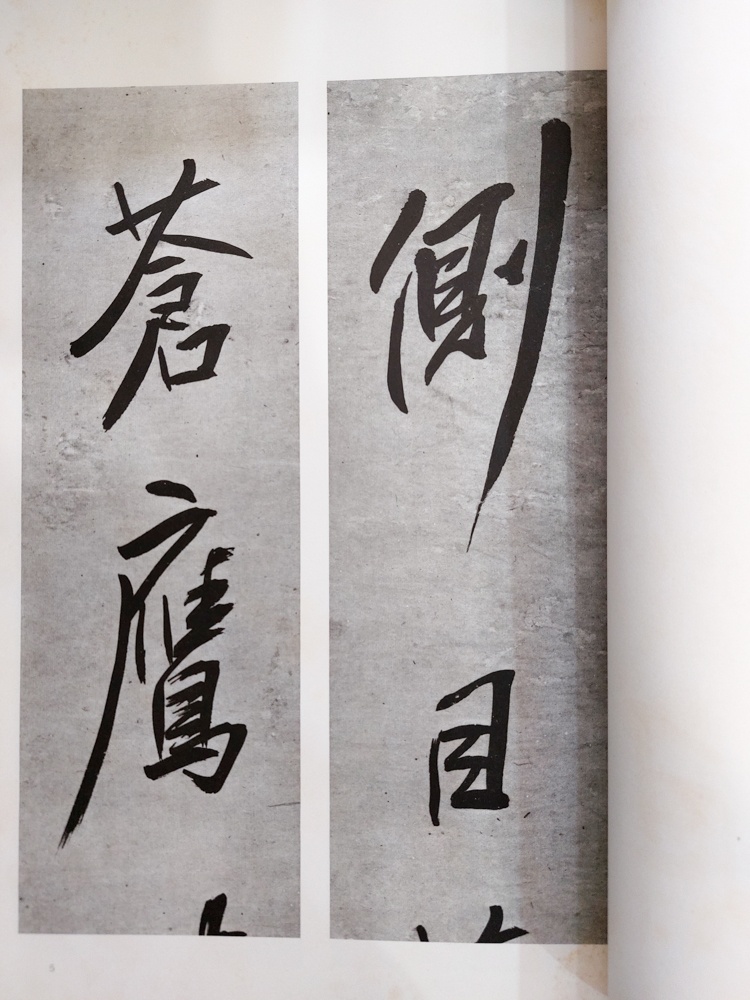 側目
蒼鷹
5